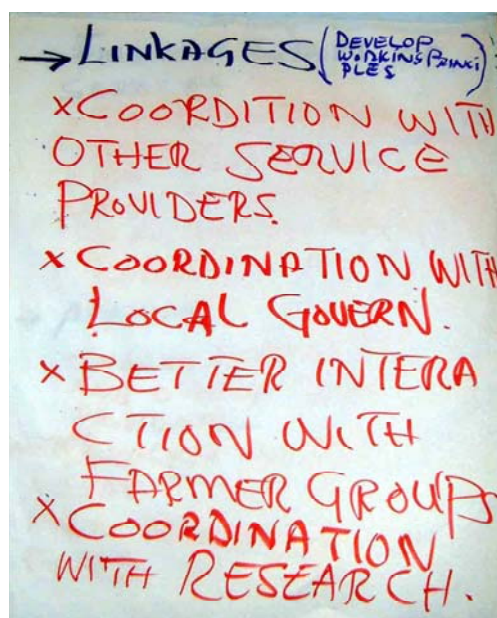 → LINKAGES (DEVELOP
WORKING PRINCI
PLES)
x COORDITION WITH
OTHER SERVICE
PROVIDERS.
x COORDINATION WITH
LOCAL GOVERN.
x BETTER INTERA
CTION WITH
FARMER GROUPS
x COORDINATION
WITH RESEARCH.